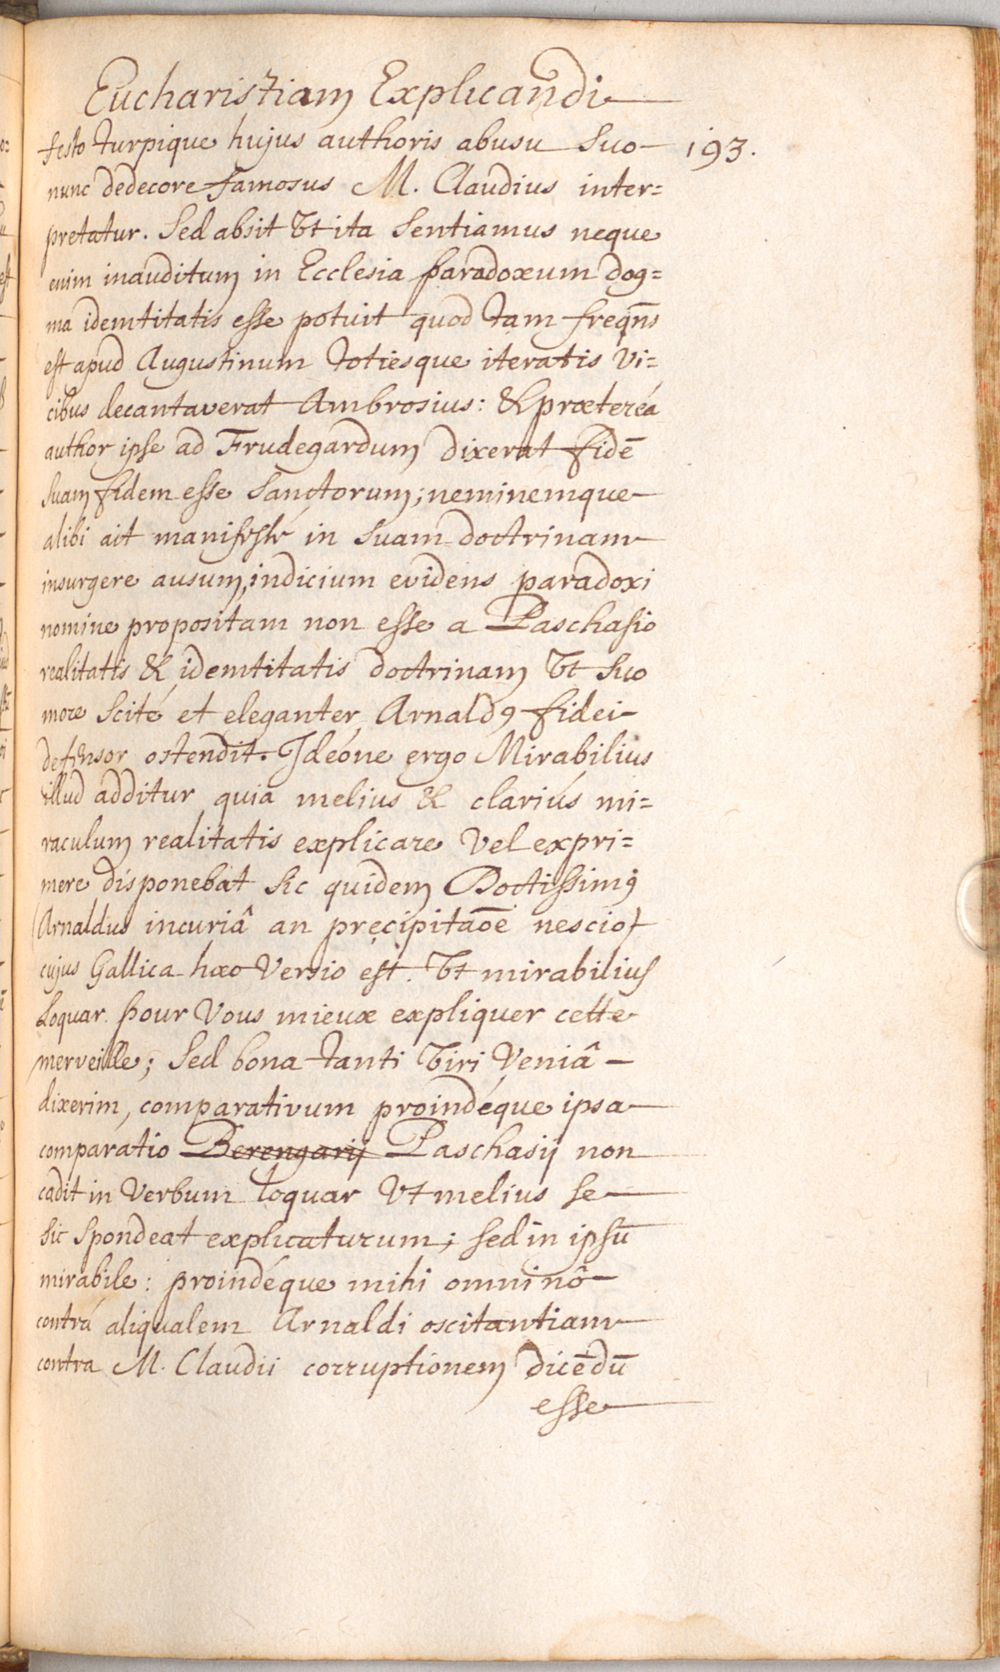 Eucharistiam Explicandi
festo turpique hujus authoris abusu suo 193.
nunc dedecore famosus M. Claudius inter=
pretatur. Sed absit Vt ita Sentiamus neque
enim inauditum in Ecclesia paradoxum dog=
ma idemtitatis esse potuit quod tam freqñs
est apud Augustinum totiesque iteratis Vi=
cibus decantaverat Ambrosius: & præteréa
author ipse ad Frudegardum dixerat fidē
suam fidem esse Sanctorum; neminemque
alibi ait manifesté in suam doctrinam
insurgere ausum, indicium evidens paradoxi
nomine propositam non esse a Paschasio
realitatis & idemtitatis doctrinam Vt suo
more scité et eleganter Arnaldꝯ fidei
defensor ostendit. Ideóne ergo Mirabilius
illud additur quia melius & clariús mi=
raculum realitatis explicare Vel expri=
mere disponebat sic quidem Doctissimꝯ
(Arnaldus incuriâ an pręcipitaōe nescio)
cujus Gallica hæc Versio est. Vt mirabilius
Loquar. pour Vous mieux expliquer cette
merveille; Sed bona tanti Viri Veniâ
dixerim, comparativum proindéque ipsa
comparatio Berengarij Paschasij non
cadit in Verbum loquar Vt melius se
sic Spondeat explicaturum; sed in ipsū
mirabile: proindéque mihi omninô
contrá aliqualem Arnaldi oscitantiam
contra M. Claudii corruptionem dicēdū
esse